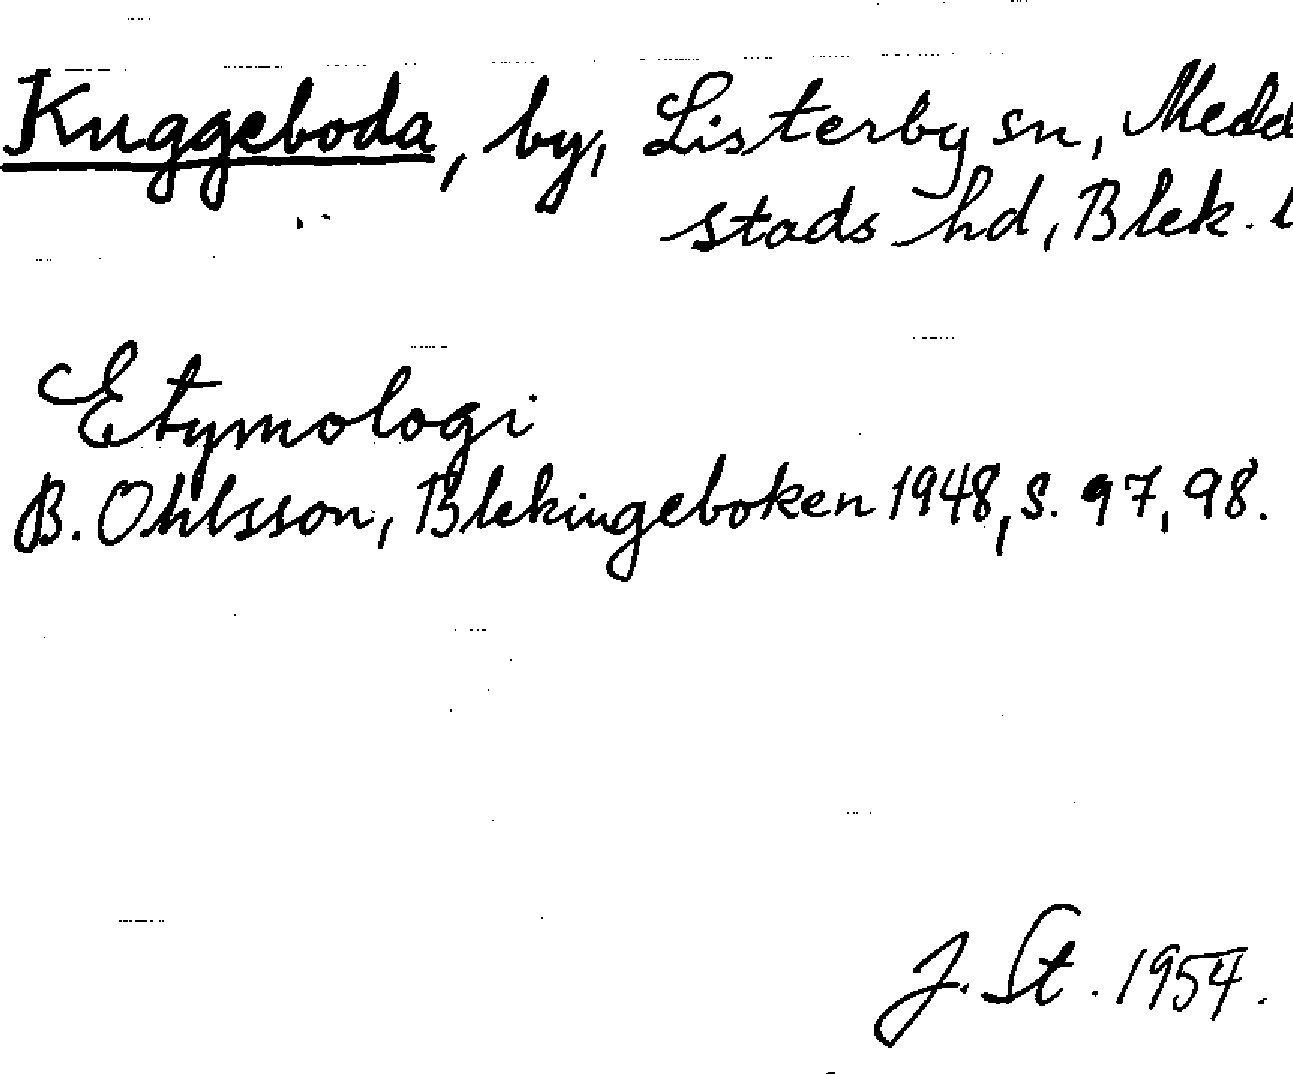 Kuggeboda, by, Listerby sn, Medel
stads hd, Blek. l
Etymologi
B. Ohlsson, Blekingeboken 1948, s. 97, 98.
J. St. 1954.